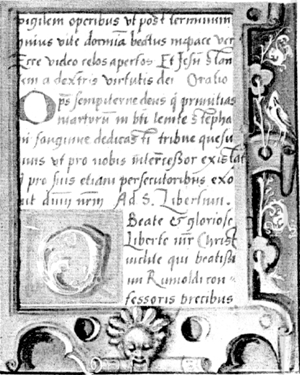 vigilem operibus vt post terminum
huius vite dormiā beatus in pace Ver
Ecce video celos apertos Et Jesū stan
tem a dextris virtutis dei Oratio
Ops̄ sempiterne deus q̄ primitias
martorum in bt̄i leuite s̄ stepha
ni sanguine dedicasti tribue quesu
mus vt pro nobis intercessor existat
q̄ pro suis etiam persecutoribus exo
rauit dn̄m nr̄m Ad S. Libertum.
O Beate & gloriose
Liberte mr̄ Christi
inclite qui beatissi
mi Rumoldi con
fessoris precibus